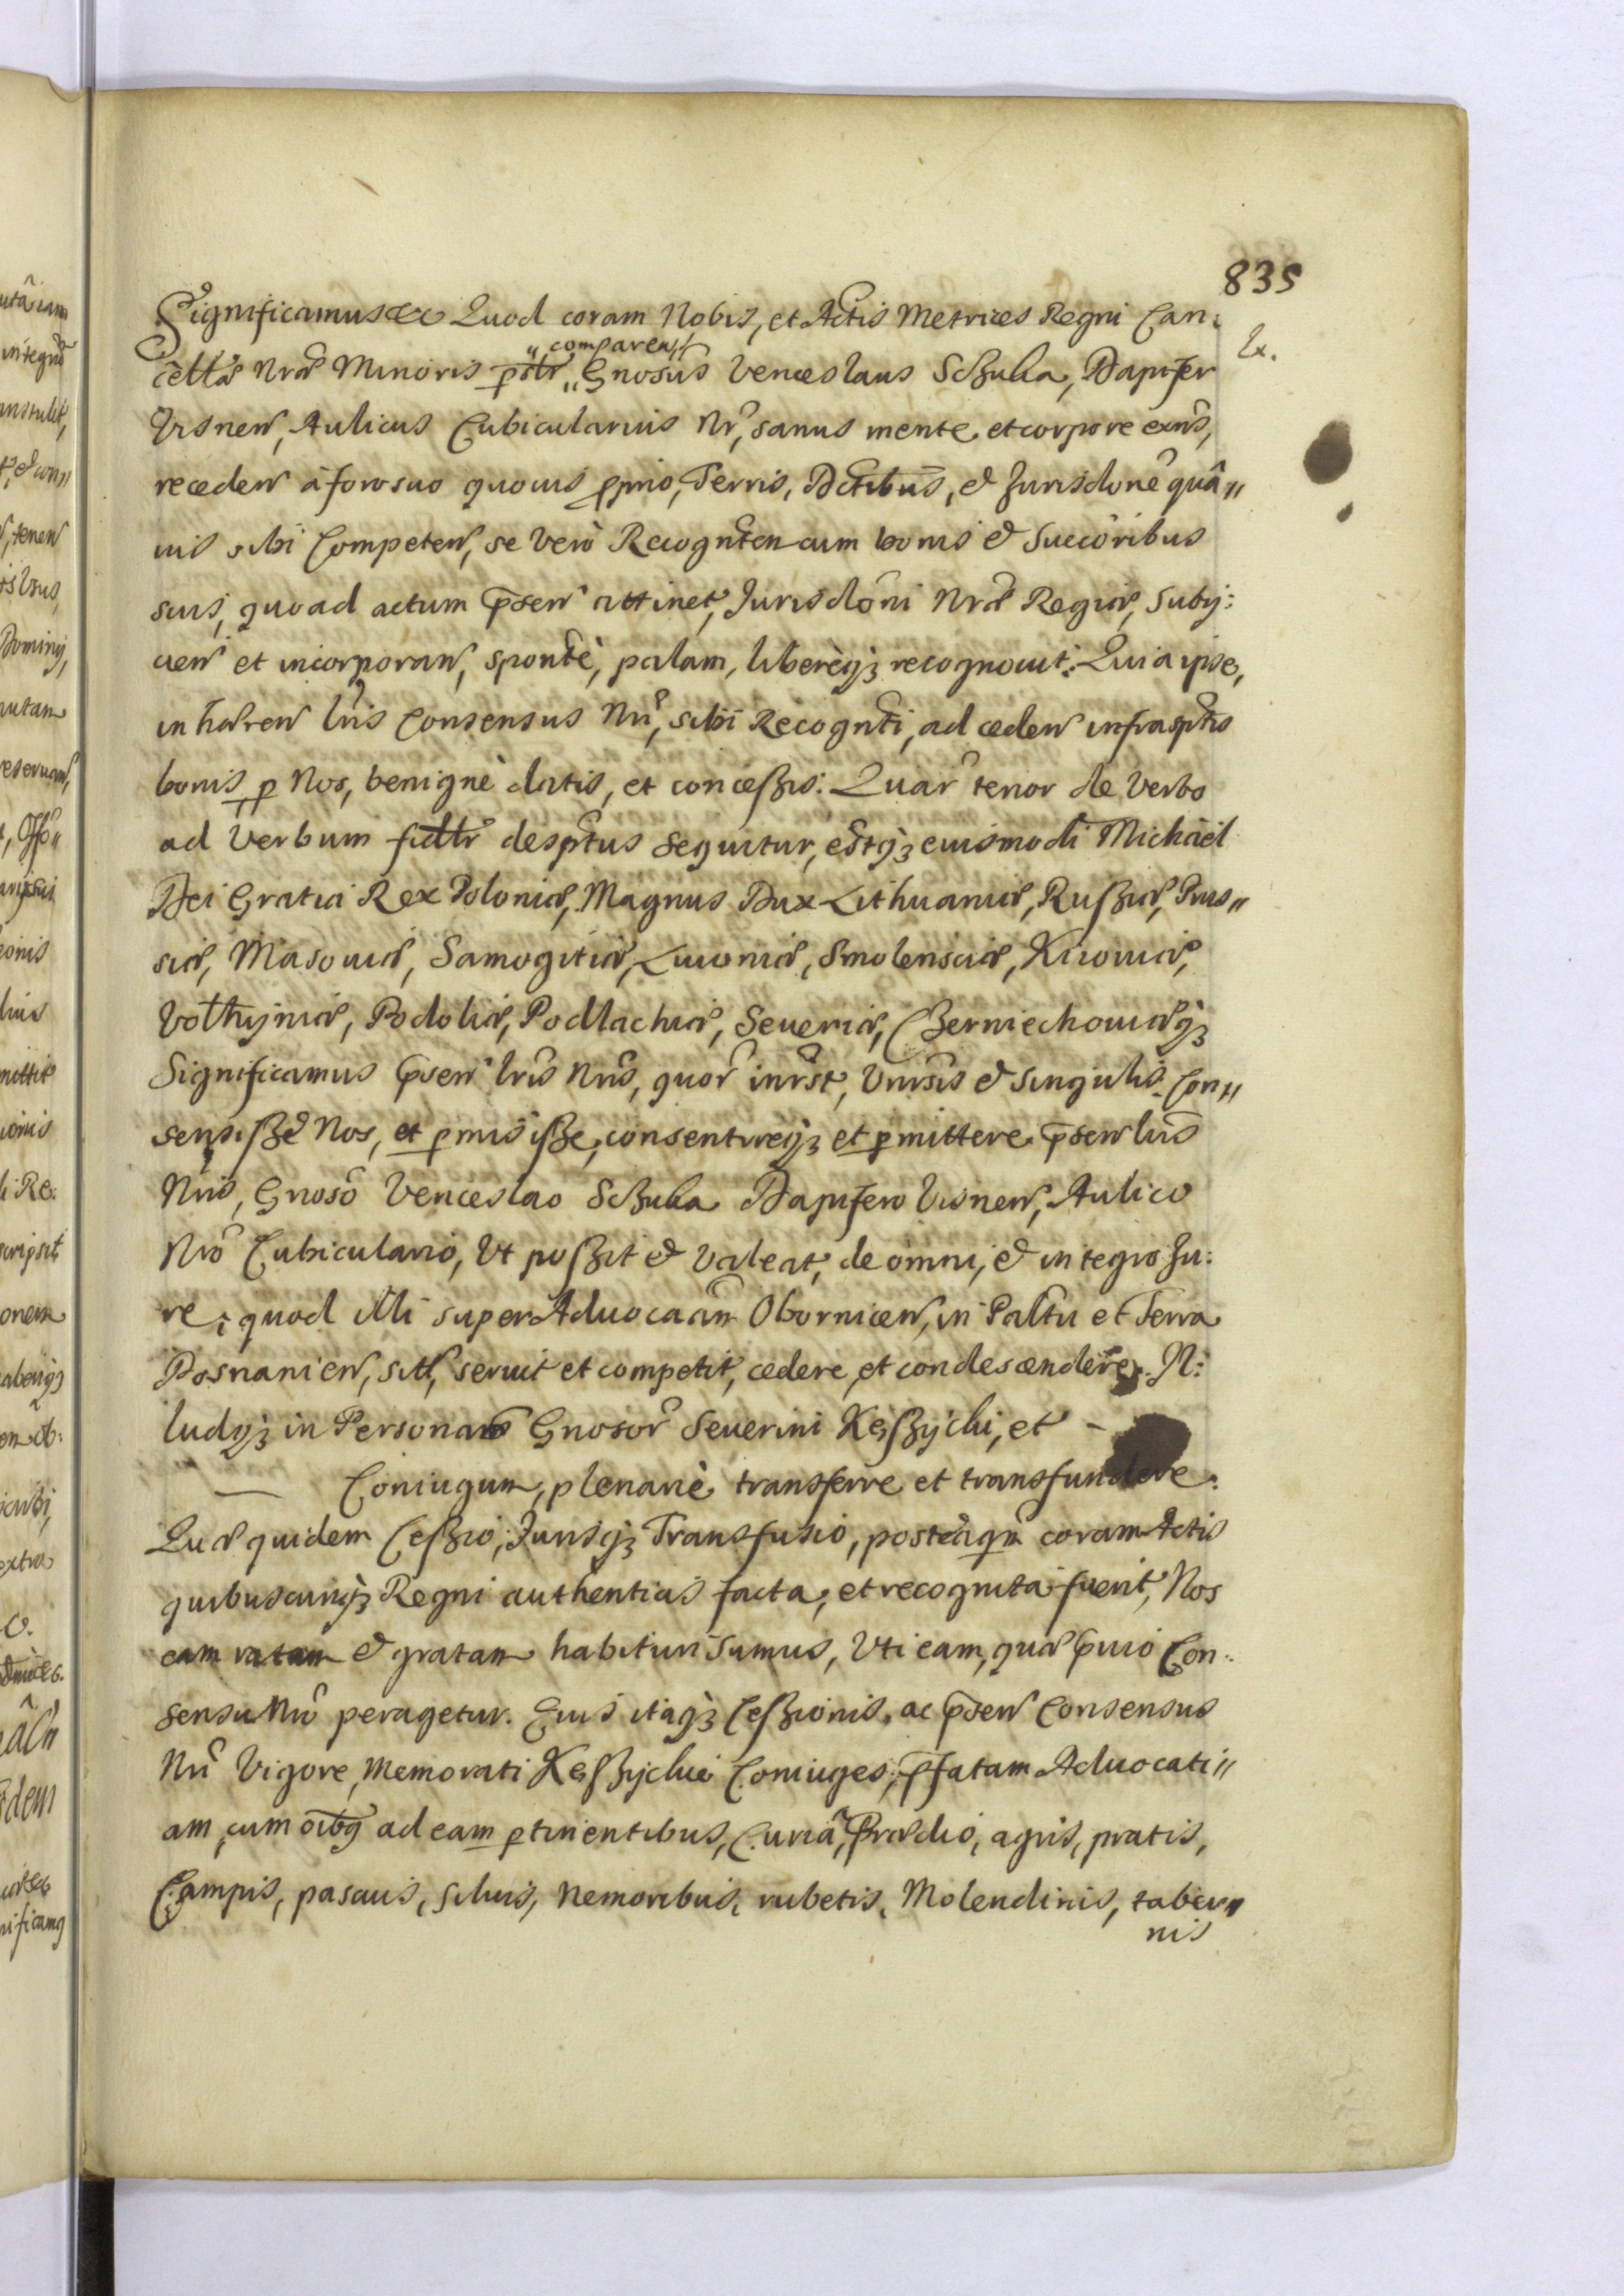 835
Significamus &c Quod coram Nobis, et Actis Metrices Regni Can:
Ex.
cellæ Nræ Minoris psltr „comparen„ Gnosus Venceslaus Sczuka, Dapifer
Visnen, Aulicus Cubicularius Nr, sanus mente et corpore exns,
receden à foro suo quouis pprio, Terris, Dctibus, et Jurisdone quâ„
uis sibi Competen, se vero Recognten cum bonis et Succoribus
suis, quoad actum pnsen attinet, Jurisdoni Nræ Regiæ, Subij:
cien et incorporan, spontè, palam, liberèq3 recognouit: Quia ipse,
inhæren Lris Consensus Nri, sibi Recognti, ad ceden infrasptis
bonis, p Nos, benignè datis, et conceßis: Quar tenor de verbo
ad Verbum fidltr desptus sequitur, estq3 eiusmodi Michael
Dei Gratia Rex Poloniæ, Magnus Dux Lithuaniæ, Rußiæ, Prus„
siæ, Masouiæ, Samogitiæ, Liuoniæ, Smolensciæ, Kiiouiæ,
Volhyniæ, Podoliæ, Podlachiæ, Seueriæ, Czerniechouiæq3
Significamus pnsen lris Nris, quor inrst, Vniuersis et singulis. Con„
sensißé Nos, et pmisiße, consentireq3 et pmittere pnsen lris
Nris, Gnoso Venceslao Sczuka Dapifero Visnen, Aulico
Nro Cubiculario, Vt poßit et valeat, de omni, et integro Ju:
re, quod illi super Aduocaam Obornicen, in Paltu et Terra
Posnanien, sitt, seruit et competit, cedere, et condescendere,
ludq3 in Personas Gnosor Seuerini Kęßycki, et –
— Coniugum, plenariè transferre et transfundere.
Quæ quidem Ceßio, Jurisq3 Transfusio, posteàqm coram Actis
quibuscunq3 Regni authenticis facta, et recognita fuerit, Nos
eam ratam et gratam habituri sumus, Vti eam, quæ pruio Con:
sensu Nro peragetur. Eius itaq3 Ceßionis, ac pnsen Consensus
Nri Vigore, Memorati Kęßyckie Coniuges, pfatam Aduocati„
am, cum oibq ad eam ptinentibus, Curiâ, Prædio, agris, pratis,
Campis, pascuis, siluis, Nemoribus, rubetis, Molendinis, taber„
nis